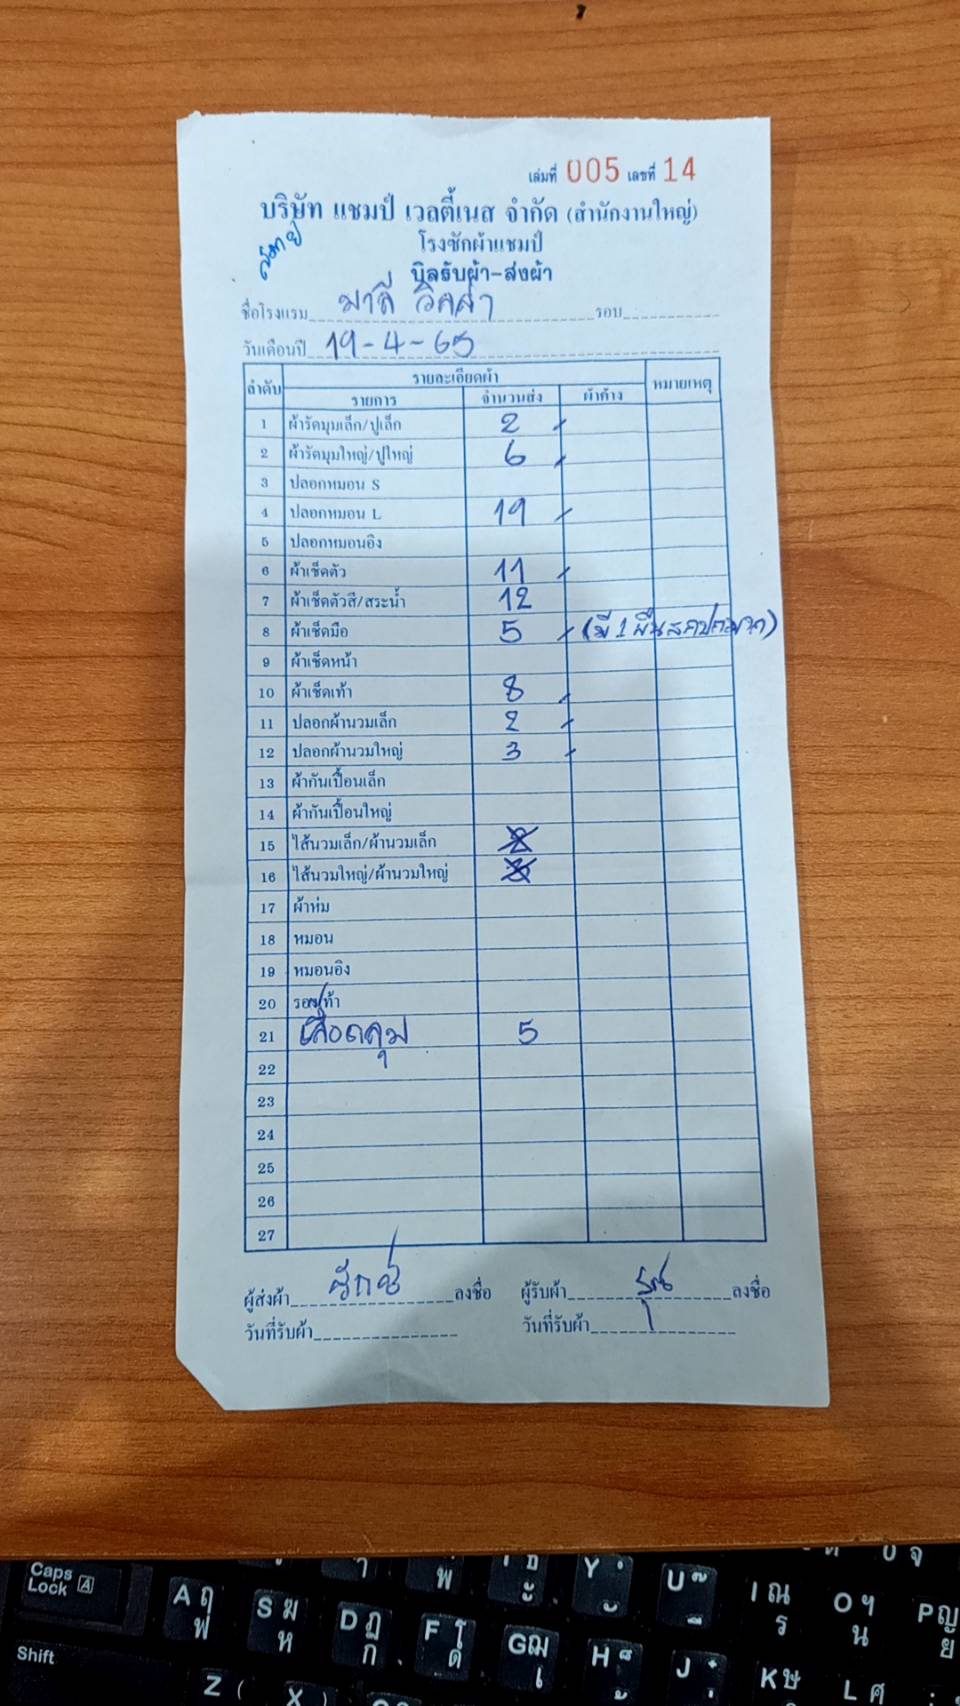 เล่มที่ 005 เลขที่ 14
บริษัท แชมป์ เวลตี้เนส จำกัด (สำนักงานใหญ่)
โรงซักผ้าแชมป์
บิลรับผ้า-ส่งผ้า
ชื่อโรงแรม มาลี วิลล่า รอบ
วันเดือนปี 19-4-65
ลำดับ รายละเอียดผ้า หมายเหตุ
รายการ จำนวนส่ง ผ้าค้าง
1 ผ้ารัดมุมเล็ก/ปูเล็ก 2
2 ผ้ารัดมุมใหญ่/ปูใหญ่ 6
3 ปลอกหมอน S
4 ปลอกหมอน L 19
5 ปลอกหมอนอิง
6 ผ้าเช็ดตัว 11
7 ผ้าเช็ดตัวสี/สระน้ำ 12
8 ผ้าเช็ดมือ 5 (มี 1 ผืนสกปรกมาก)
9 ผ้าเช็ดหน้า
10 ผ้าเช็ดเท้า 8
11 ปลอกผ้านวมเล็ก 2
12 ปลอกผ้านวมใหญ่ 3
13 ผ้ากันเปื้อนเล็ก
14 ผ้ากันเปื้อนใหญ่
15 ไส้นวมเล็ก/ผ้านวมเล็ก
16 ไส้นวมใหญ่/ผ้านวมใหญ่
17 ผ้าห่ม
18 หมอน
19 หมอนอิง
20 รองเท้า
21 เสื้อคลุม 5
22
23
24
25
26
27
ผู้ส่งผ้า ลงชื่อ ผู้รับผ้า ลงชื่อ
วันที่รับผ้า วันที่รับผ้า
Caps Lock A
A ฤ ฟ S ฆ ห D ฏ ก F โ ด G ฌ เ H ็ ้ J ๋ ่ K ษ L ศ
Y U I ณ ร O ฯ น P ญ ย
Shift
Z ( X )